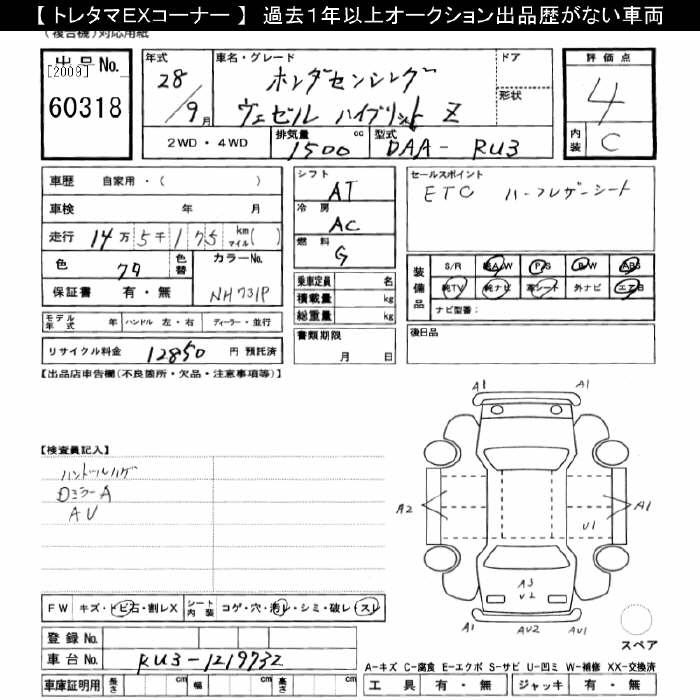 【 トレタマEXコーナー 】 過去1年以上オークション出品歴がない車両
(複合機)対応用紙
出品No.
[2009]
60318
年式
28/9月
車名・グレード
ホンダセンシング
ヴェゼル ハイブリット Z
ドア
形状
評価点
4
内装 C
2WD・4WD
排気量 1500 cc
型式 DAA- RU3
車歴 自家用・( )
車検 年 月
走行 14万5千175 km マイル( )
色 クロ
色替
カラーNo. NH731P
保証書 有・無
モデル年式 年 ハンドル 左・右 ディーラー・並行
リサイクル料金 12850 円 預託済
シフト AT
冷房 AC
燃料 G
乗車定員 名
積載量 kg
総重量 kg
書類期限
月 日
セールスポイント
ETC ハーフレザーシート
装備品
S/R 純A/W P/S P/W ABS
純TV 純ナビ 革シート 外ナビ エアB
ナビ型番:
後日品
【出品店申告欄(不良箇所・欠品・注意事項等)】
【検査員記入】
ハンドルハゲ
DミラーA
AU
A1 A1
A2 A1
U1
A3
U2
A1 AU2 AU1
スペア
FW キズ・トビ石・割レX シート内装 コゲ・穴・汚レ・シミ・破レ・スレ
登録No.
車台No. RU3-1219732
車庫証明用 長さ cm 幅 cm 高さ cm
A-キズ C-腐食 E-エクボ S-サビ U-凹ミ W-補修 XX-交換済
工具 有・無 ジャッキ 有・無